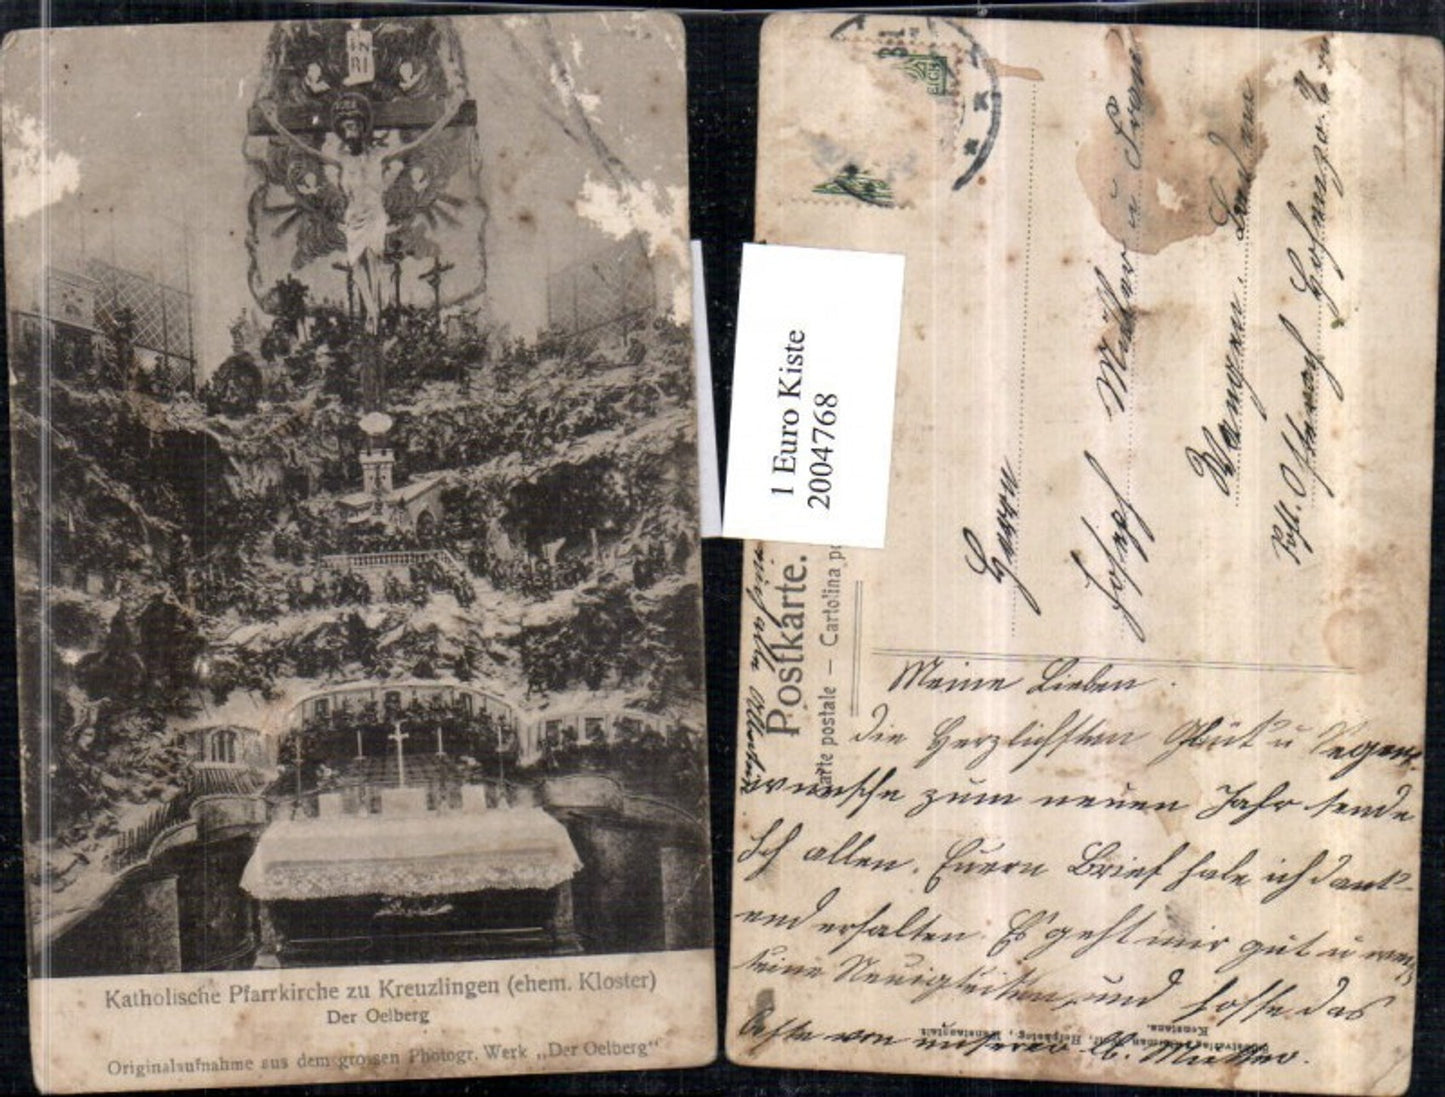 INRI
Katholische Pfarrkirche zu Kreuzlingen (ehem. Kloster)
Der Oelberg
Originalaufnahme aus dem grossen Photogr. Werk „Der Oelberg“
1 Euro Kiste
2004768
Postkarte.
Carte postale – Cartolina po
Herrn
Josef Müller u Frau
Wangen.
Post. Ostrach Hohenzo.
Meine Lieben
die Herzlichsten Glück u Segens
wünsche zum neuen Jahr sende
Ich allen. Euern Brief habe ich dank
end erhalten. Es geht mir gut u weis
keine Neuigkeiten, und hoffe das
Beste von unserer lb. Mutter.
Konstanz.